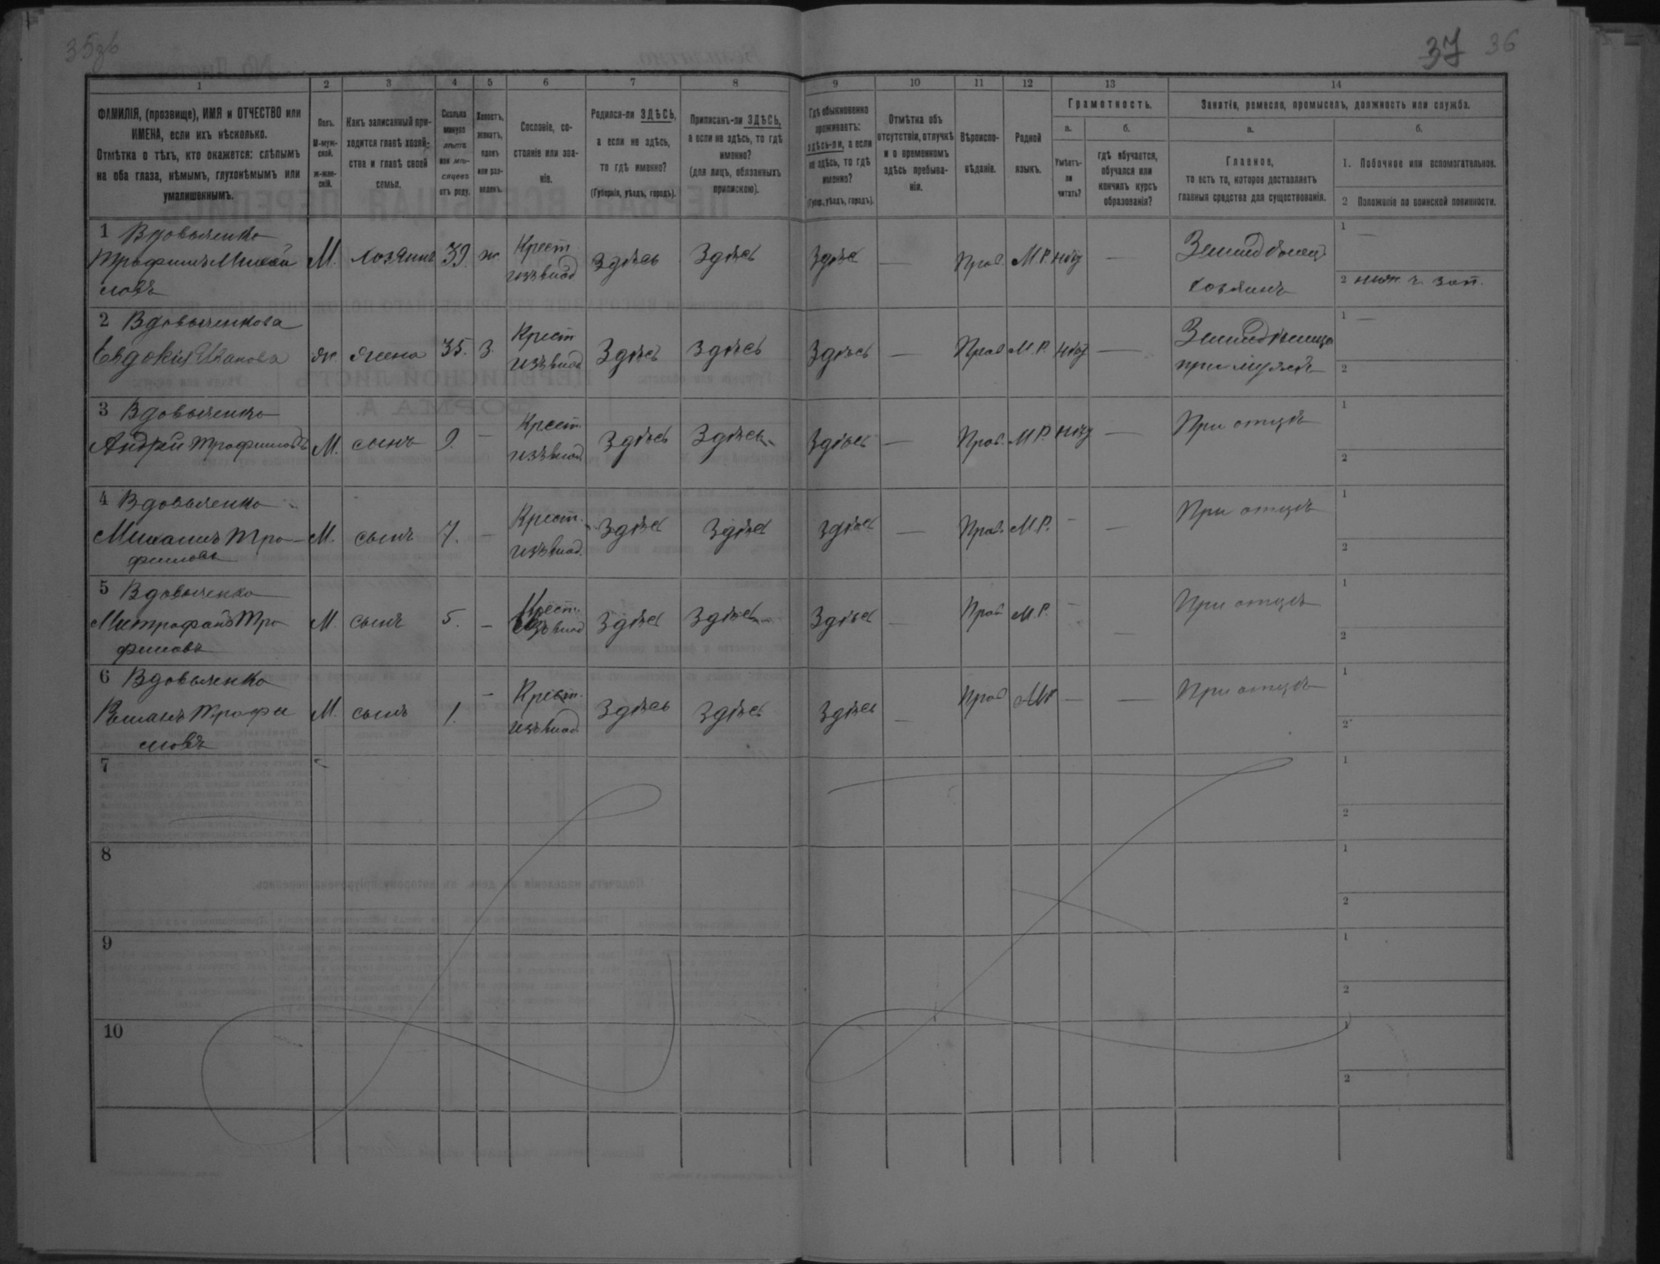 35об
37 36
1 2 3 4 5 6 7 8 9 10 11 12 13 14
ФАМИЛІЯ, (прозвище), ИМЯ и ОТЧЕСТВО или
ИМЕНА, если ихъ нѣсколько.
Отмѣтка о тѣхъ, кто окажется: слѣпымъ
на оба глаза, нѣмымъ, глухонѣмымъ или
умалишеннымъ.
Полъ.
М-муж-
ской.
ж-жен-
скій.
Какъ записанный при-
ходится главѣ хозяй-
ства и главѣ своей
семьи.
Сколько
минуло
лѣтъ
или мѣ-
сяцевъ
отъ роду.
Холостъ,
женатъ,
вдовъ
или раз-
веденъ.
Сословіе, со-
стояніе или зва-
ніе.
Родился-ли ЗДѢСЬ,
а если не здѣсь,
то гдѣ именно?
(Губернія, уѣздъ, городъ).
Приписанъ-ли ЗДѢСЬ,
а если не здѣсь, то гдѣ
именно?
(для лицъ, обязанныхъ
припискою).
Гдѣ обыкновенно
проживаетъ:
здѣсь-ли, а если
не здѣсь, то гдѣ
именно?
(Губ., уѣздъ, городъ).
Отмѣтка объ
отсутствіи, отлучкѣ
и о временномъ
здѣсь пребыва-
ніи.
Вѣроиспо-
вѣданіе.
Родной
языкъ.
Грамотность.
а.
Умѣетъ-
ли
читать?
б.
гдѣ обучается,
обучался или
кончилъ курсъ
образованія?
Занятіе, ремесло, промыселъ, должность или служба.
а.
Главное,
то есть то, которое доставляетъ
главныя средства для существованія.
б.
1. Побочное или вспомогательное.
2 Положеніе по воинской повинности.
1 Вдовыченко
Трофимъ Михай
ловъ
М. хозяинъ 39 ж. Крест.
изъ влад Здѣсь Здѣсь Здѣсь — Прав М.Р. —
Земледѣлец
хозяинъ
1 —
2
2 Вдовыченкова
Евдокия Иванова
ж жена 35. З. Крест
изъ влад Здѣсь Здѣсь Здѣсь — Прав М.Р. —
Земледѣлица
при мужѣ
1 —
2
3 Вдовыченко
Андрей Трофимовъ
М. сынъ 9 — Крест
изъ влад Здѣсь Здѣсь Здѣсь — Прав. М.Р. —
При отцѣ
1
2
4 Вдовыченко
Михаилъ Тро—
фимовъ
М. сынъ 7. — Крест.
изъ влад. Здѣсь Здѣсь Здѣсь — Прав. М.Р. — —
При отцѣ
1
2
5 Вдовыченко
Митрофанъ Тро
фимовъ
М сынъ 5. — Крест.
изъ влад Здѣсь Здѣсь Здѣсь — Прав М.Р. — —
При отцѣ
1
2
6 Вдовыченко
Трофи
мовъ
М. сынъ 1. — Крест.
изъ влад Здѣсь Здѣсь Здѣсь — Прав МР — —
При отцѣ
1
2
7
1
2
8
1
2
9
1
2
10
1
2